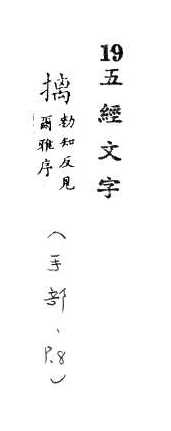 19五經文字
摛 勑知反見
爾雅序
(手部、P.8)